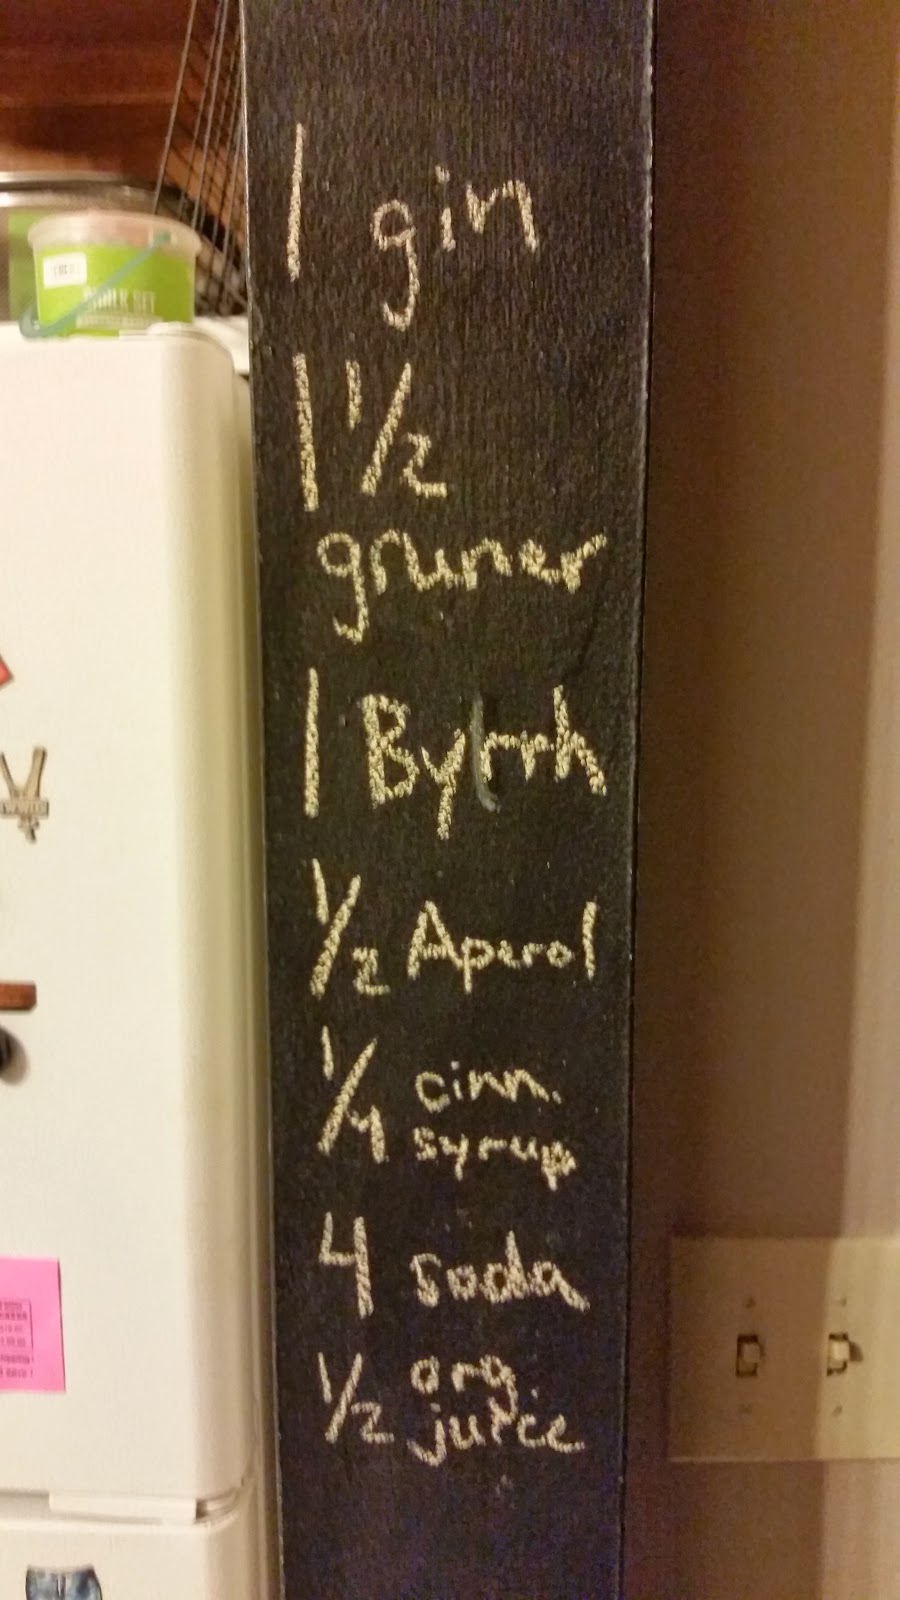 CHALK SET
1 gin
1 1/2
gruner
1 Byrrh
1/2 Aperol
1/4 cinn.
syrup
4 soda
1/2 org.
juice